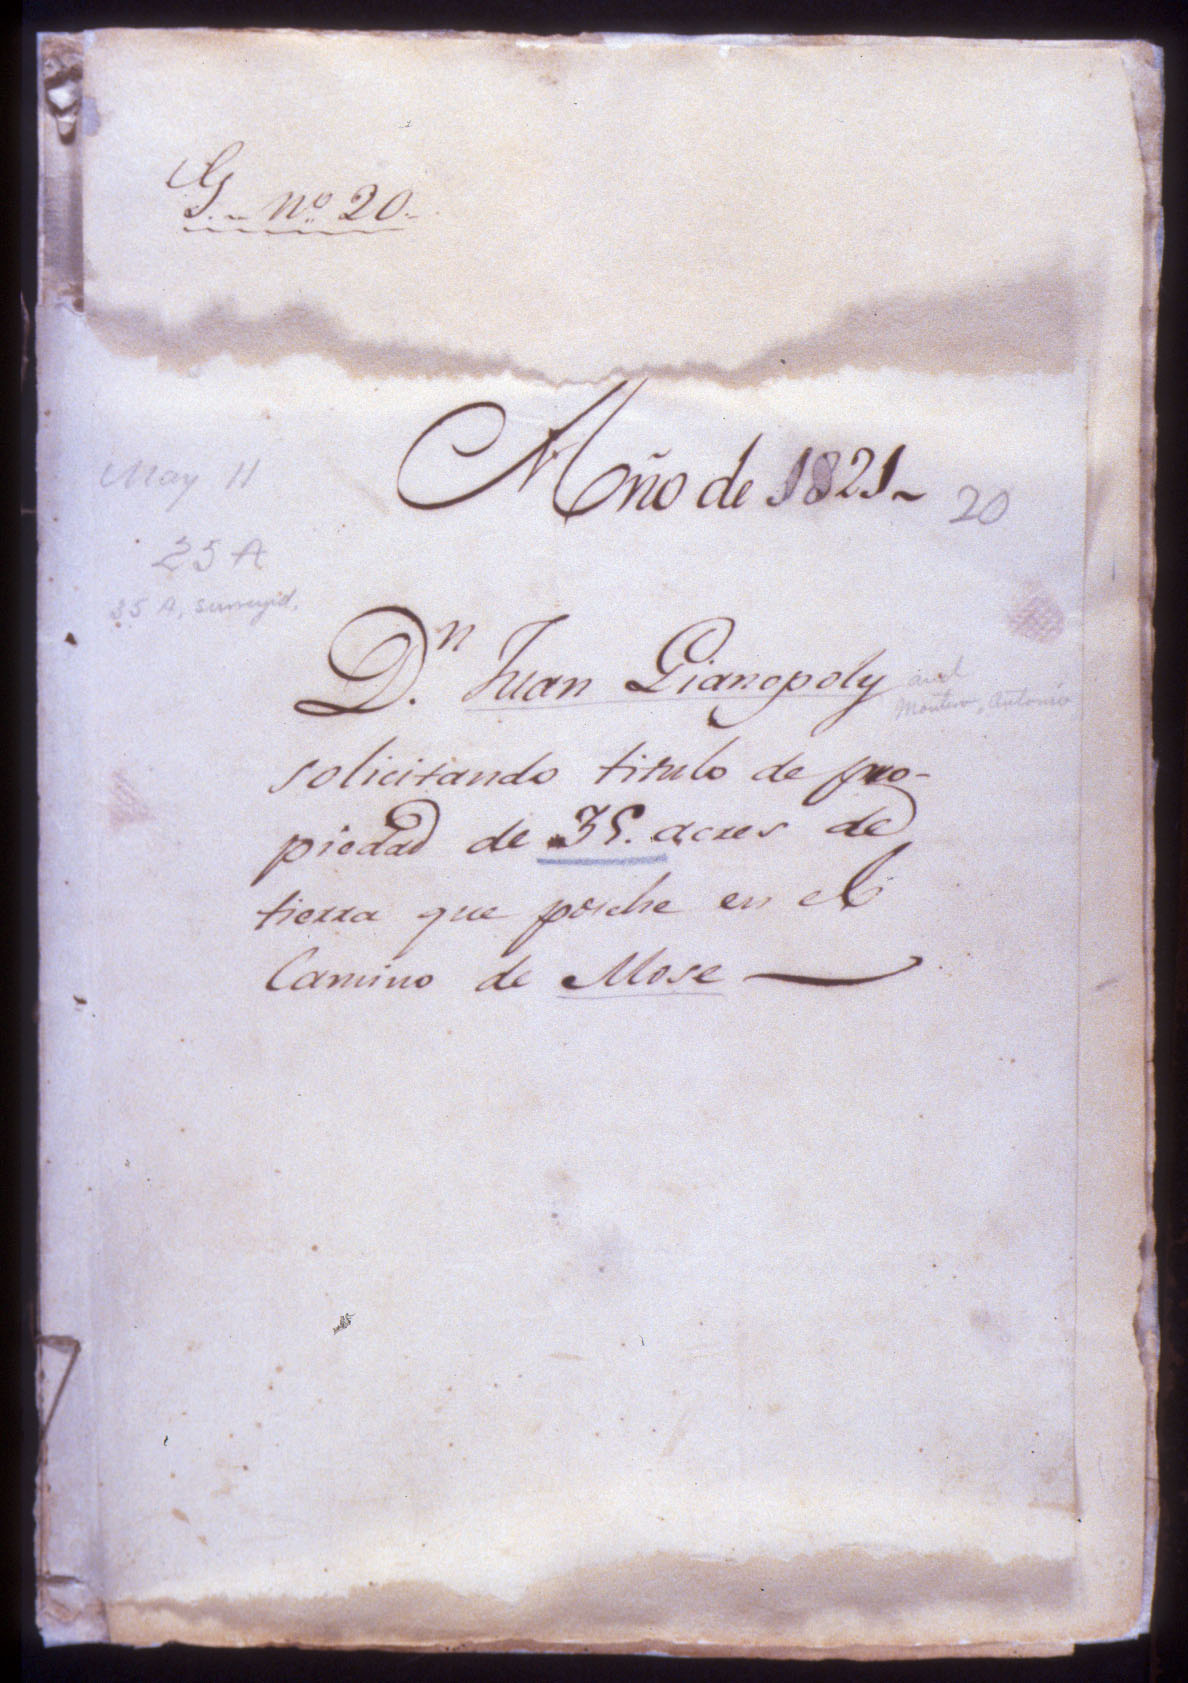 G. nº 20.
Año de 1821
20
May 11
25 A
35 A, surveyed.
D.n Juan Gianopoly
and
Montero, Antonio
solicitando titulo de pro-
piedad de 35. acres de
tierra que poséhe en el
Camino de Mose